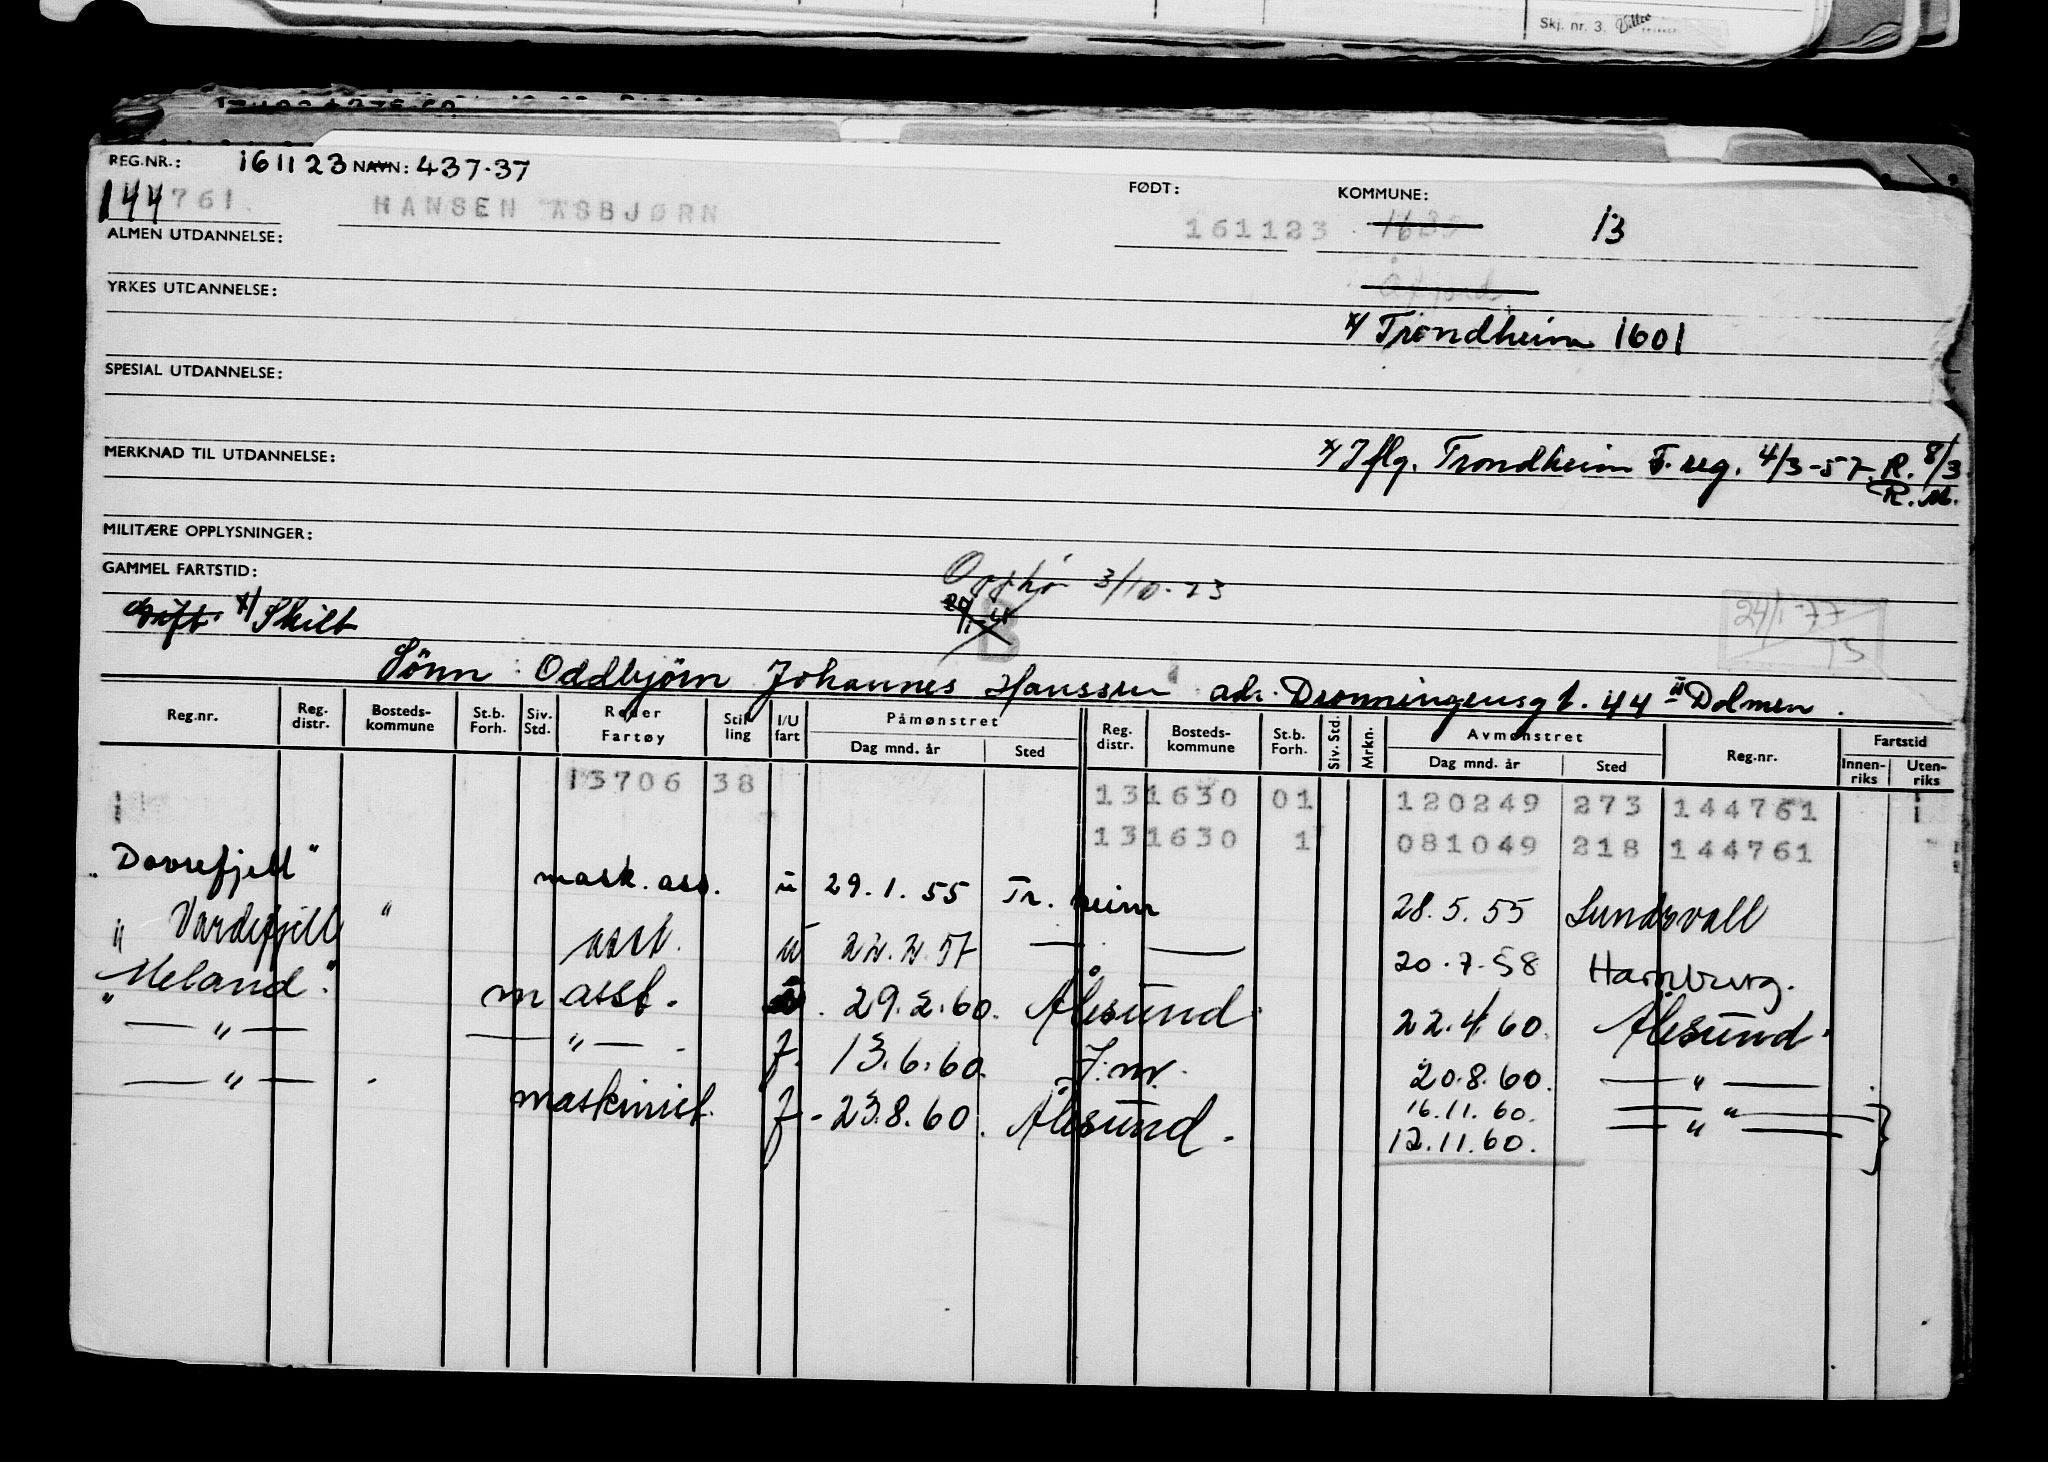 Skj. nr. 3.
REG.NR.: 161123 NAVN: 437.37
144761. HANSEN ASBJØRN
FØDT: 161123
KOMMUNE: 13
ALMEN UTDANNELSE:
YRKES UTDANNELSE:
x/ Trondheim 1601
SPESIAL UTDANNELSE:
MERKNAD TIL UTDANNELSE:
x/ Iflg. Trondheim F. reg. 4/3-57. R. 8/3
R.M.
MILITÆRE OPPLYSNINGER:
GAMMEL FARTSTID:
Opphør 3/10-23
gift. x/ Skilt
B
24/1-77
Sönn: Oddbjørn Johannes Hanssen adr. Dronningensgt. 44 II Dolmen.
Reg.nr. Reg. distr. Bosteds- kommune St.b. Forh. Siv. Std. Reder Fartøy Stil- ling I/U fart Påmønstret Dag mnd. år Sted Reg. distr. Bosteds- kommune St.b. Forh. Siv. Std. Mrkn. Avmønstret Dag mnd. år Sted Reg.nr. Fartstid Innen- riks Uten- riks
13706 38 131630 01 120249 273 144761
131630 1 081049 218 144761
"Dovrefjell" mask. ass. u 29.1.55 Tr.heim 28.5.55 Sundsvall
" Vardefjell " asst. u 22.2.57 — — 20.7.58 Hamburg.
"Meland". m asst. u. 29.2.60. Ålesund. 22.4.60. Ålesund.
— " — — " — . f. 13.6.60. F.nr. 20.8.60. — " — .
— " — . maskinist. f. - 23.8.60. Ålesund. 16.11.60. — " —
12.11.60. — " —